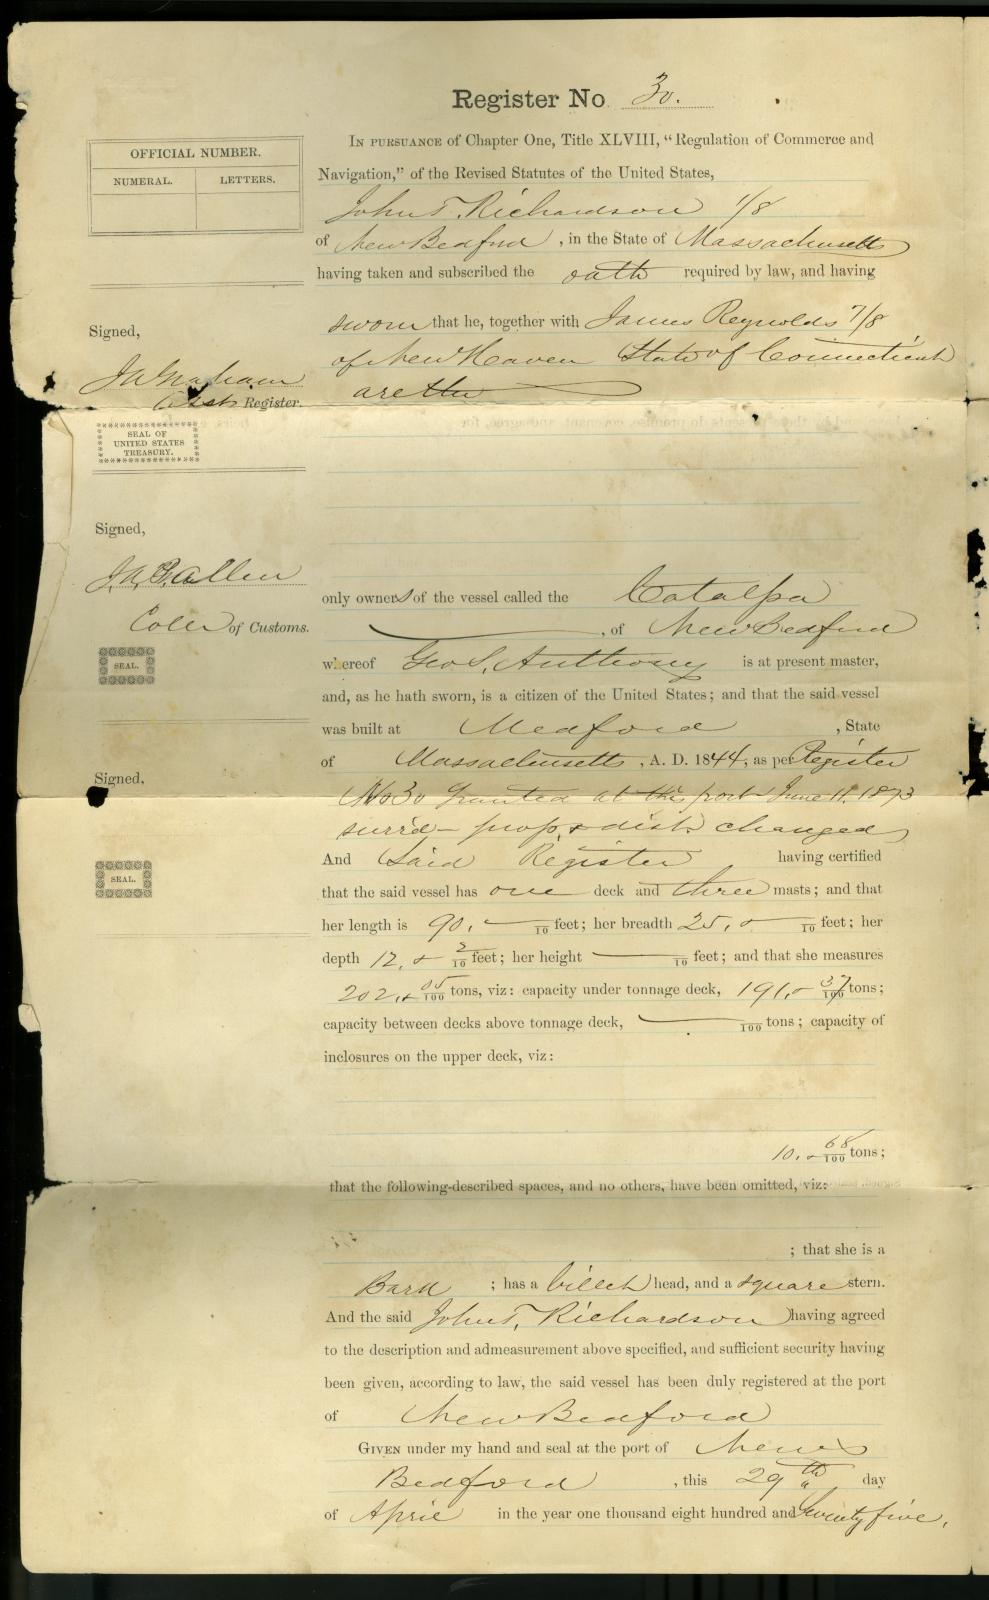 Register No 30.
OFFICIAL NUMBER.
NUMERAL. LETTERS.
IN PURSUANCE of Chapter One, Title XLVIII, "Regulation of Commerce and
Navigation," of the Revised Statutes of the United States,
John T. Richardson 1/8
of New Bedford, in the State of Massachusetts
having taken and subscribed the oath required by law, and having
sworn that he, together with James Reynolds 7/8
of New Haven State of Connecticut
are the
Signed,
J A Graham
Asst Register.
SEAL OF
UNITED STATES
TREASURY.
Signed,
J. A. P. Allen
Coll of Customs.
SEAL.
Signed,
SEAL.
only owners of the vessel called the Catalpa
, of New Bedford
whereof Geo S. Anthony is at present master,
and, as he hath sworn, is a citizen of the United States; and that the said vessel
was built at Medford, State
of Massachusetts, A. D. 1844, as per Register
No 30 Granted at this port June 11, 1873
surr'd - prop. & dist. changed
And Said Register having certified
that the said vessel has one deck and three masts; and that
her length is 90. /10 feet; her breadth 25. & /10 feet; her
depth 12. & 2/10 feet; her height /10 feet; and that she measures
202. & 05/100 tons, viz: capacity under tonnage deck, 191. & 37/100 tons;
capacity between decks above tonnage deck, /100 tons; capacity of
inclosures on the upper deck, viz:
10. & 68/100 tons;
that the following-described spaces, and no others, have been omitted, viz:
; that she is a
Bark ; has a billet head, and a square stern.
And the said John T. Richardson having agreed
to the description and admeasurement above specified, and sufficient security having
been given, according to law, the said vessel has been duly registered at the port
of New Bedford
GIVEN under my hand and seal at the port of New
Bedford, this 29th day
of April in the year one thousand eight hundred and Seventy five.